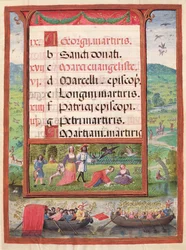 ix. A Georgij. martiris.
b Sancti donati.
x. c Marci euangeliste.
d Marcelli. episcopi
e Longini. martiris.
f Patricij episcopi.
g Petri martiris.
A Martiani. martiris